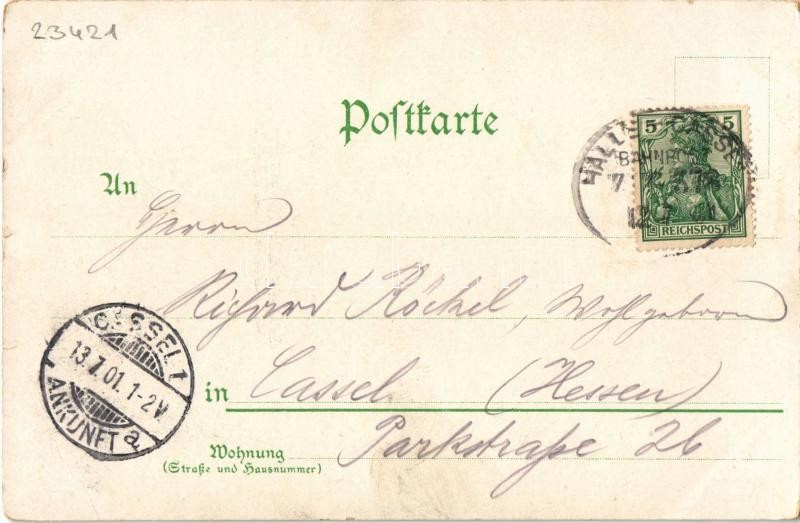 23421
Postkarte
5 5
HALLE CASSEL
BAHNPOST
REICHSPOST
An
Herrn
Richard Röckel, Wohlgeboren
CASSEL 1
13.7.01. 1-2V.
ANKUNFT a
in Cassel (Hessen)
Wohnung
(Straße und Hausnummer)
Parkstraße 26